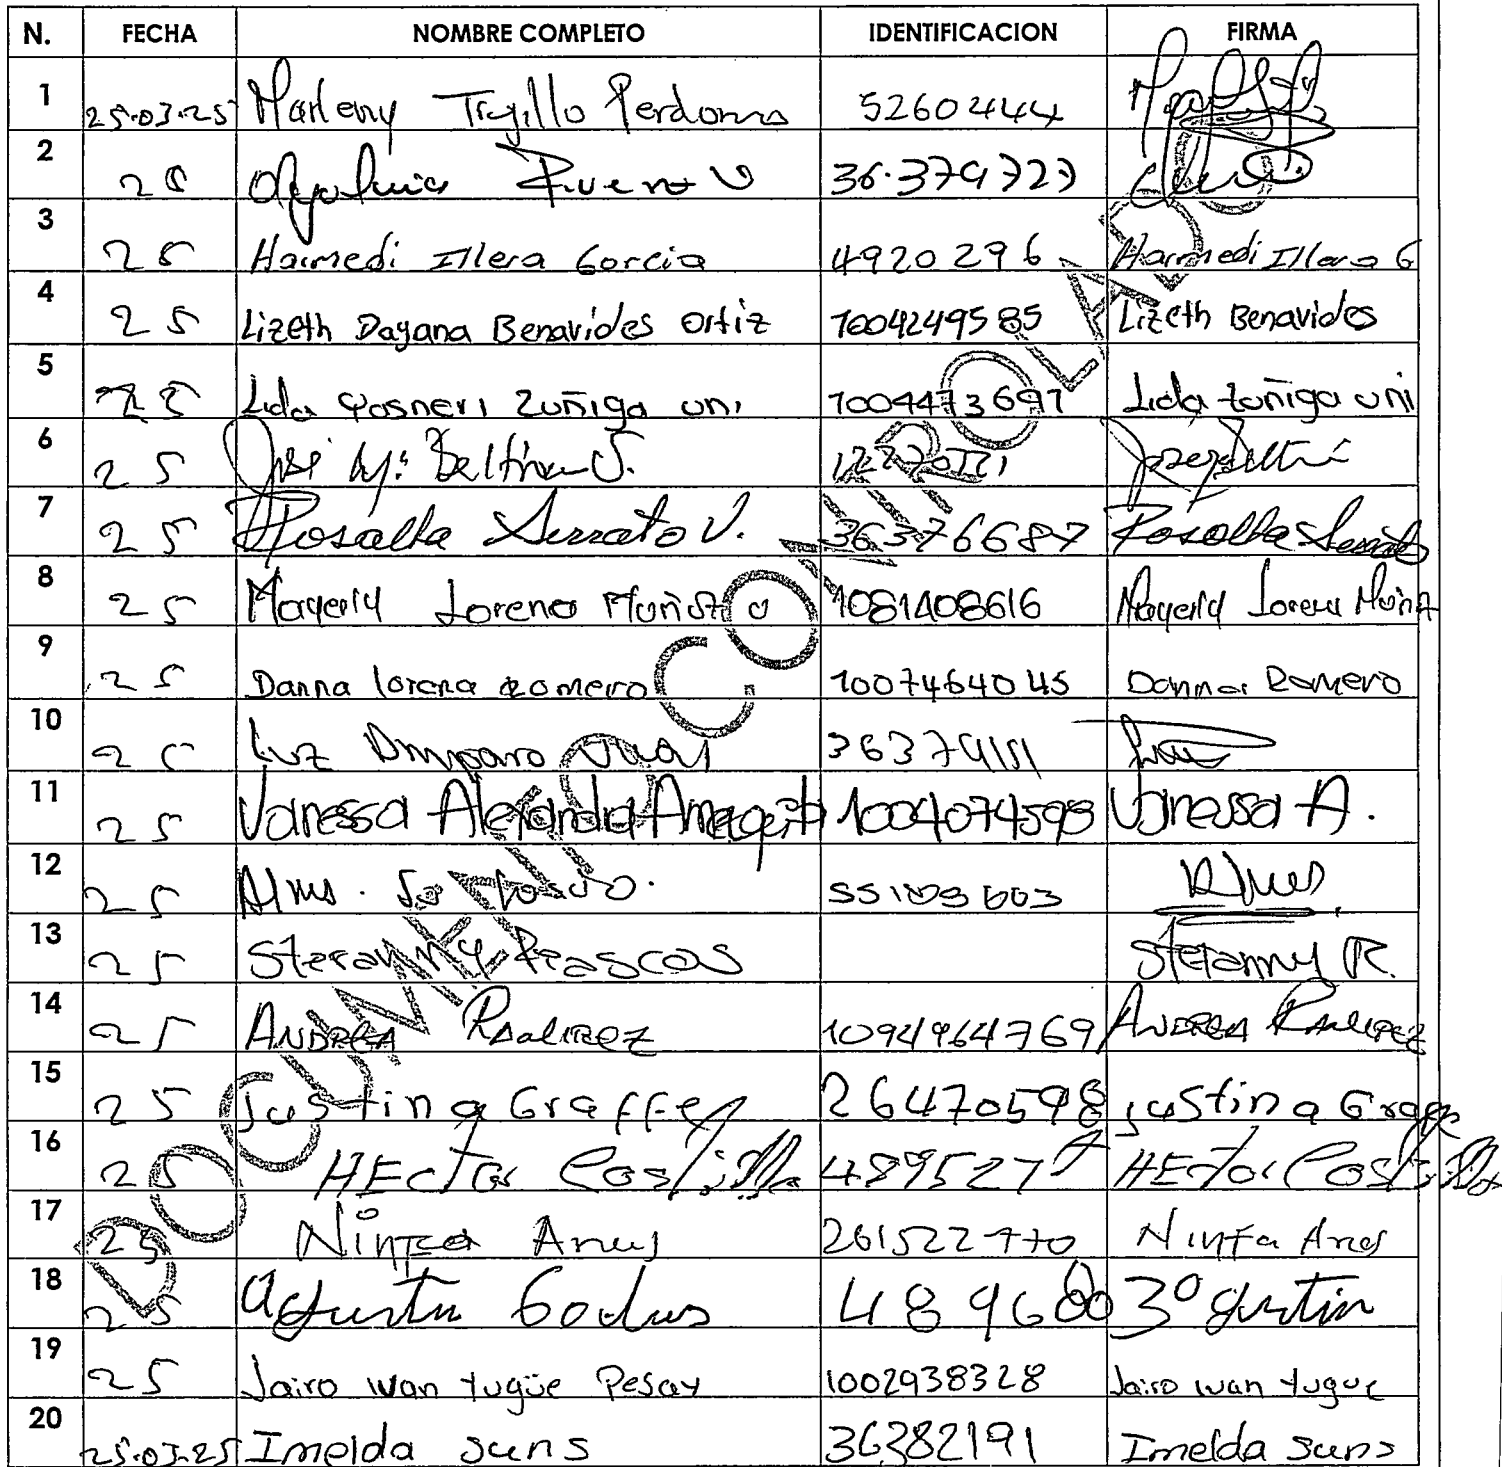 N. FECHA NOMBRE COMPLETO IDENTIFICACION FIRMA
1 25-03-25 Marleny Trujillo Perdomo 52602444
2 25 36.379727
3 25 Haimedi Illera Garcia 4920296 Haimedi Illera G
4 25 Lizeth Dayana Benavides Ortiz 1004249585 Lizeth Benavides
5 25 Lida Yasneri Zuñiga uni 1004473697 Lida Zuñiga uni
6 25 José Beltran S.
7 25 Rosalba Serrato V. 36376687 Rosalba Serrato
8 25 Mayerly Lorena Muñoz 1081408616 Mayerly Lorena Muñoz
9 25 Danna lorena Romero 1007464045 Danna Romero
10 25 Luz Amparo
11 25 Vanessa Alexandra 1004074598 Vanessa A.
12 25
13 25 Stefanny R.
14 25 ANDREA RAMIREZ 1094964769 ANDREA RAMIREZ
15 25 justina Graffe 26470598 justina
16 25 HEctor Castillo HEctor Castillo
17 25 Ninfa Ninfa
18 25
19 25 Jairo Ivan Yugüe Pescay 1002938328 Jairo Ivan Yugue
20 25-03-25 Imelda Suns 36382191 Imelda Suns
DOCUMENTO CONTROLADO